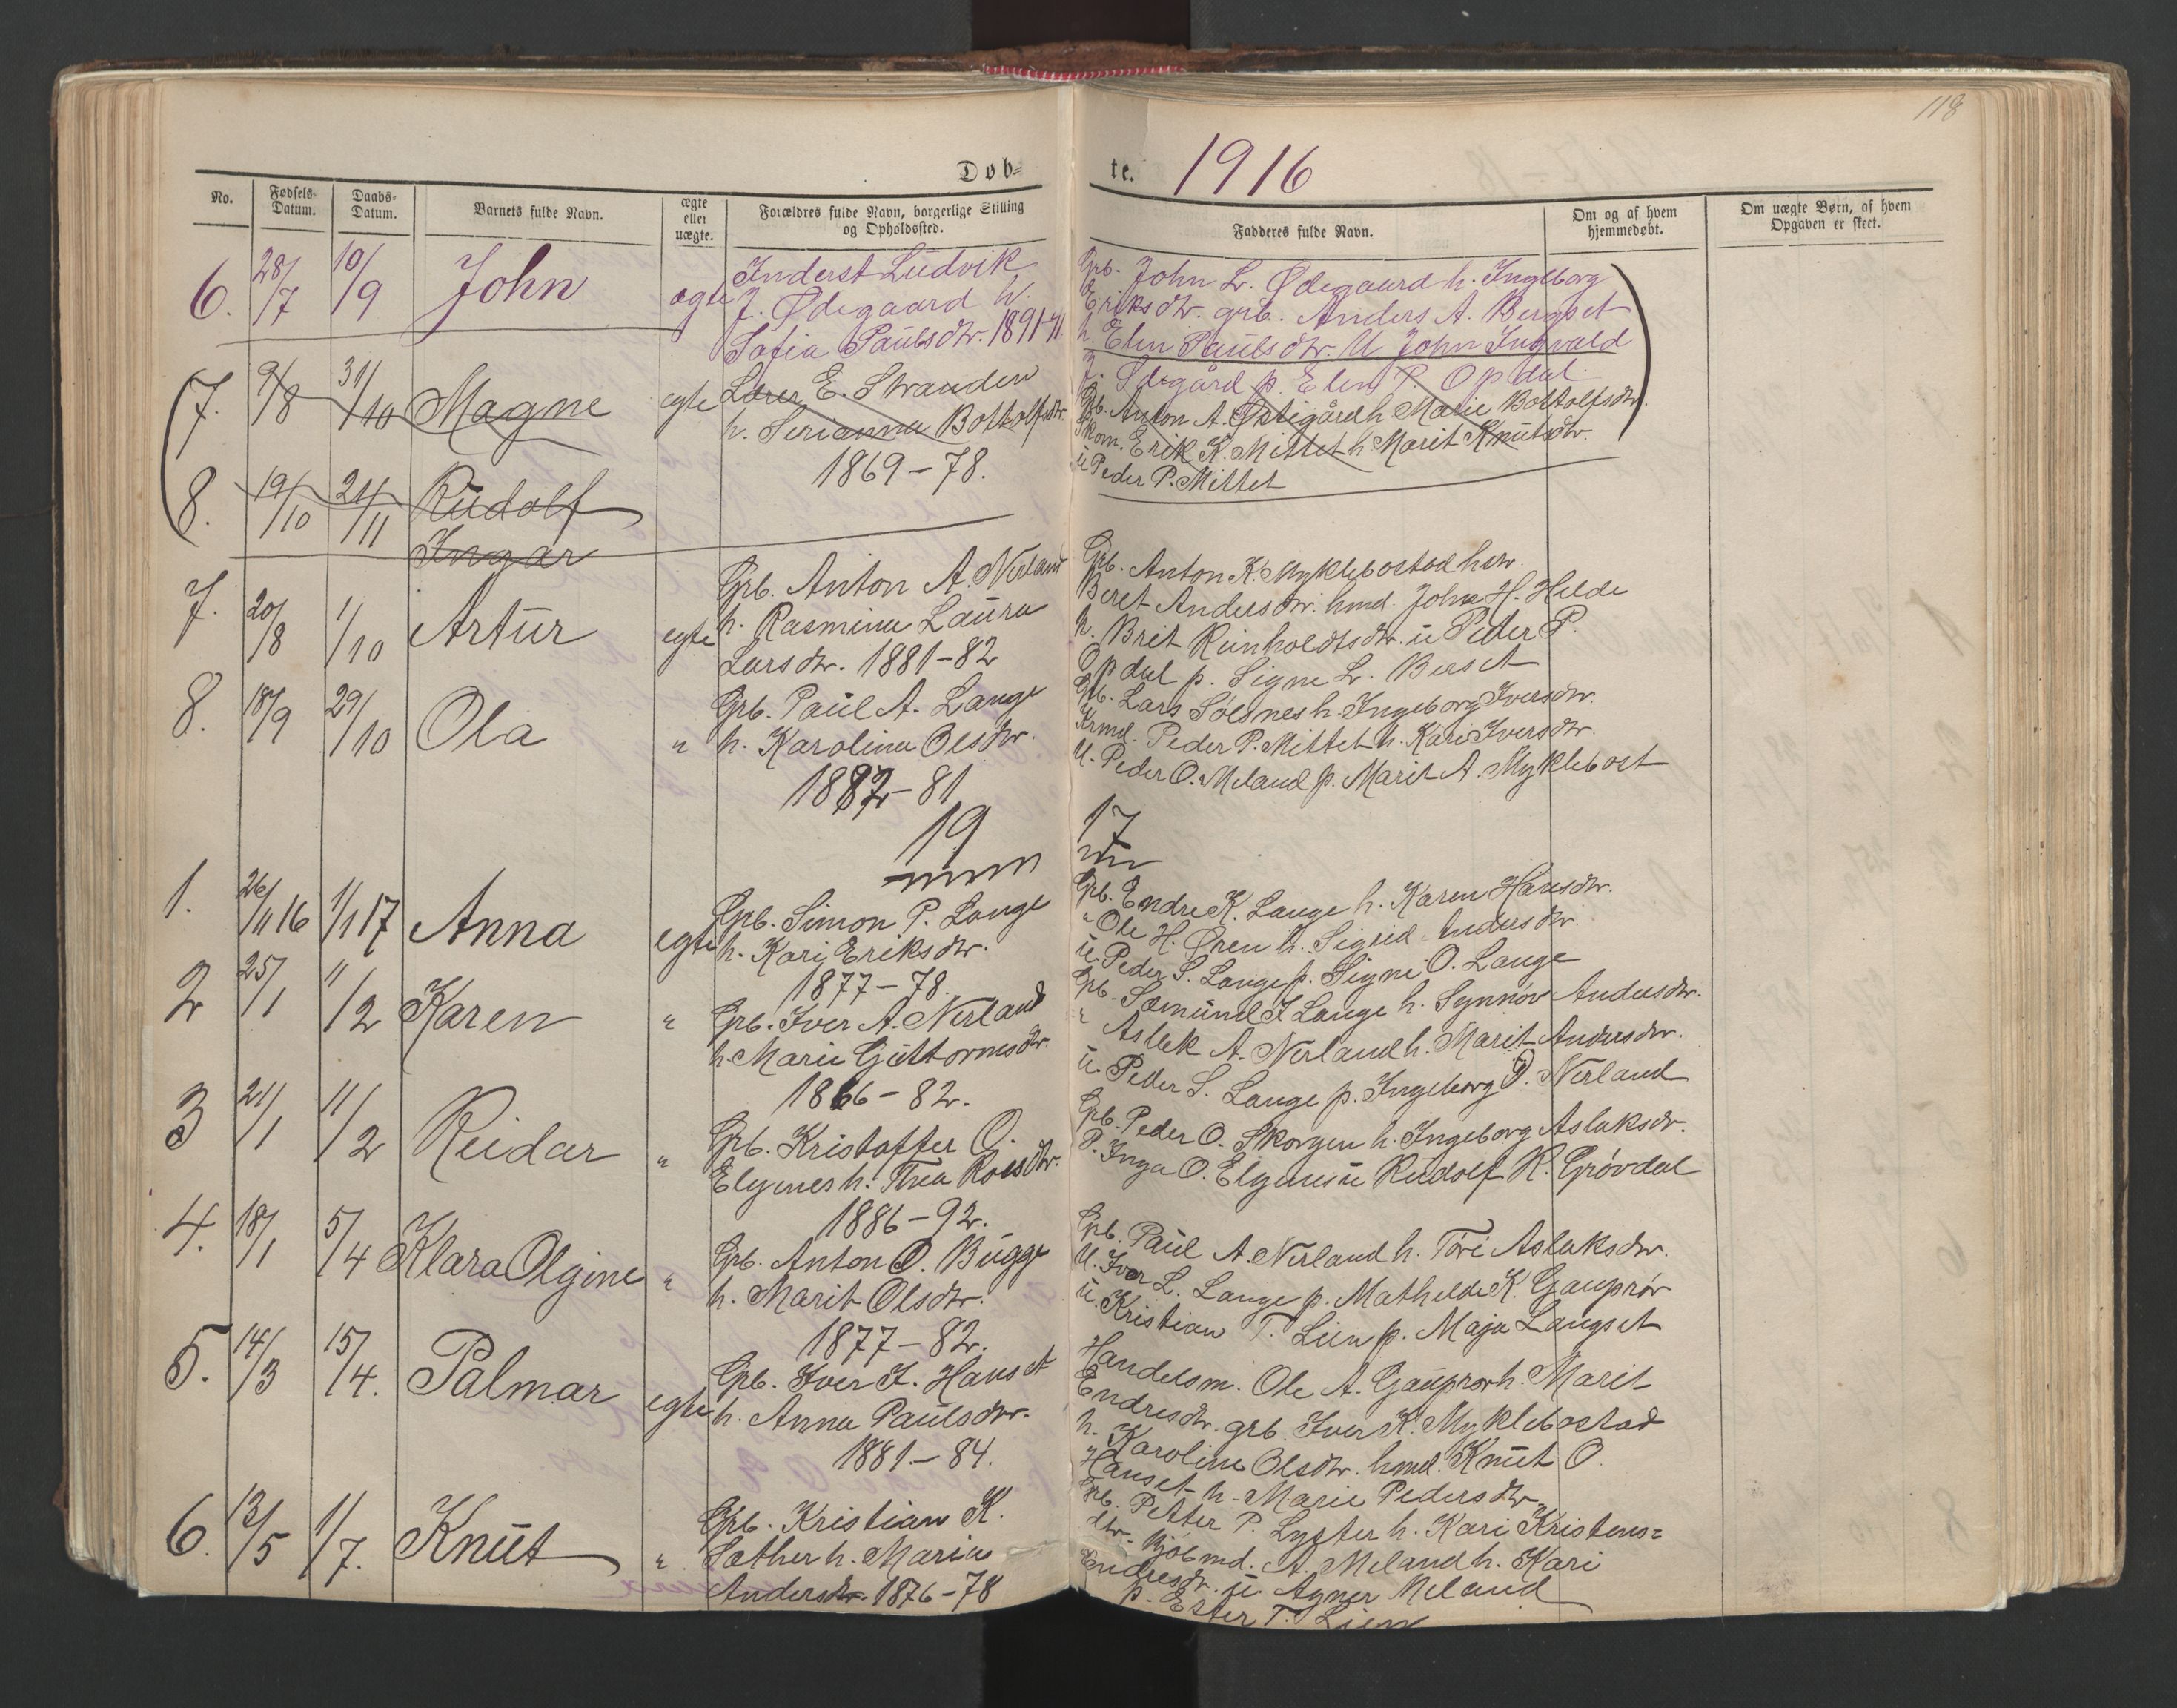 118
Døb=
te. 1916
No.
Fødsels-
Datum.
Daabs-
Datum.
Barnets fulde Navn.
ægte
eller
uægte.
Forældres fulde Navn, borgerlige Stilling
og Opholdssted.
Fadderes fulde Navn.
Om og af hvem
hjemmedøbt.
Om uægte Børn, af hvem
Opgaven er skeet.
6. 28/7 10/9 John ægte
Inderst Ludvik
J. Ødegaard h.
Sofia Paulsdtr. 1891-71
Grb. John L. Ødegaard h. Ingeborg
Eriksdtr. grb. Anders A. Bergset
h. Elen Paulsdtr. U John Ingvald
J. Ødegård p. Elen P. Opdal.
7. 9/8 31/10 Magne egte
Lærer E. Stranden
h. Serianna Bottolfsdtr.
1869-78.
Gb. Anton A. Østigård h. Marie Bottolfsdtr.
Skom. Erik K. Mittet h Marit Knutsdtr.
u Peder P. Mittet
8. 19/10 21/11 Rudolf
Ingar
7. 20/8 1/10 Artur egte
Grb. Anton A. Nerland
h. Rasmina Laura
Larsdtr. 1881-82
Grb. Anton K. Myklebostad hstr.
Beret Andersdtr. hmd. John H. Helde
h. Brit Reinholdtsdtr. u Peder P.
Opdal p. Signe L. Berset
8. 18/9 29/10 Ola "
Grb. Paul A. Lange
h. Karolina Olsdtr.
1882-81
Grb. Lars Solsnes h. Ingeborg Iversdtr.
Krmd. Peder P. Mittet h. Kari Iversdtr.
U. Peder O. Meland p. Marit A. Myklebost
19
17
1. 26/11 16 1/1 17 Anna egte
Grb. Simon P. Lange
h. Kari Eriksdtr.
1877-78.
Grb. Endre K. Lange h. Karen Hansdtr.
" Ole H. Øren h. Sigrid Andersdtr.
u. Peder S. Lange p. Signe O. Lange
2 25/1 11/2 Karen "
Grb. Iver A. Nerland
h. Marie Guttormsdtr.
1866-82.
Grb. Sæmund I Lange h. Synnøv Andersdtr.
" Aslak A. Nerland h. Marit Andersdtr.
u. Peder S. Lange p. Ingeborg O. Nerland
3 21/1 11/2 Reidar "
Grb. Kristoffer O.
Elgenes h. Thea Roesdtr.
1886-92.
Grb. Peder O. Skorgen h. Ingeborg Aslaksdr.
P. Inga O. Elgenes u Rudolf K. Grøvdal
4. 18/1 5/4 Klara Olgine "
Grb. Anton O. Bugge
h. Marit Olsdtr.
1877-82.
Grb. Paul A. Nerland h. Tore Aslaksdtr.
U. Iver L. Lange p. Mathelde K. Gauprør
u. Kristian T. Lien p. Maja Langset
5. 14/3 15/4. Palmar egte
Grb. Iver I. Hanset
h. Anna Paulsdtr.
1881-84.
Handelsm. Ole A. Gauprør h. Marit
Endresdtr. grb. Iver K. Myklebostad
h. Karoline Olsdtr. hmd. Knut O.
Hanset h. Marie Pedersdtr.
6. 13/5 1/7. Knut "
Grb. Kristian K.
Sæther h. Maria
Andersdtr. 1876-78
Grb. Petter P. Lyster h. Kari Kristens=
dtr. Kjøbmd. A. Meland h. Kari
Endresdr. u. Agner Meland
p. Ester T. Lien